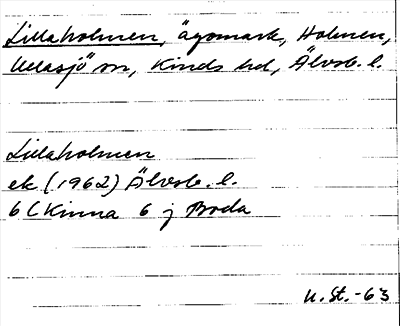 Lillaholmen, ägomark, Holmen,
Ullasjö sn, Kinds hd, Älvsb. l.
Lillaholmen
ek (1962) Älvsb. l.
6 C Kinna 6 j Broda
U. St. -63